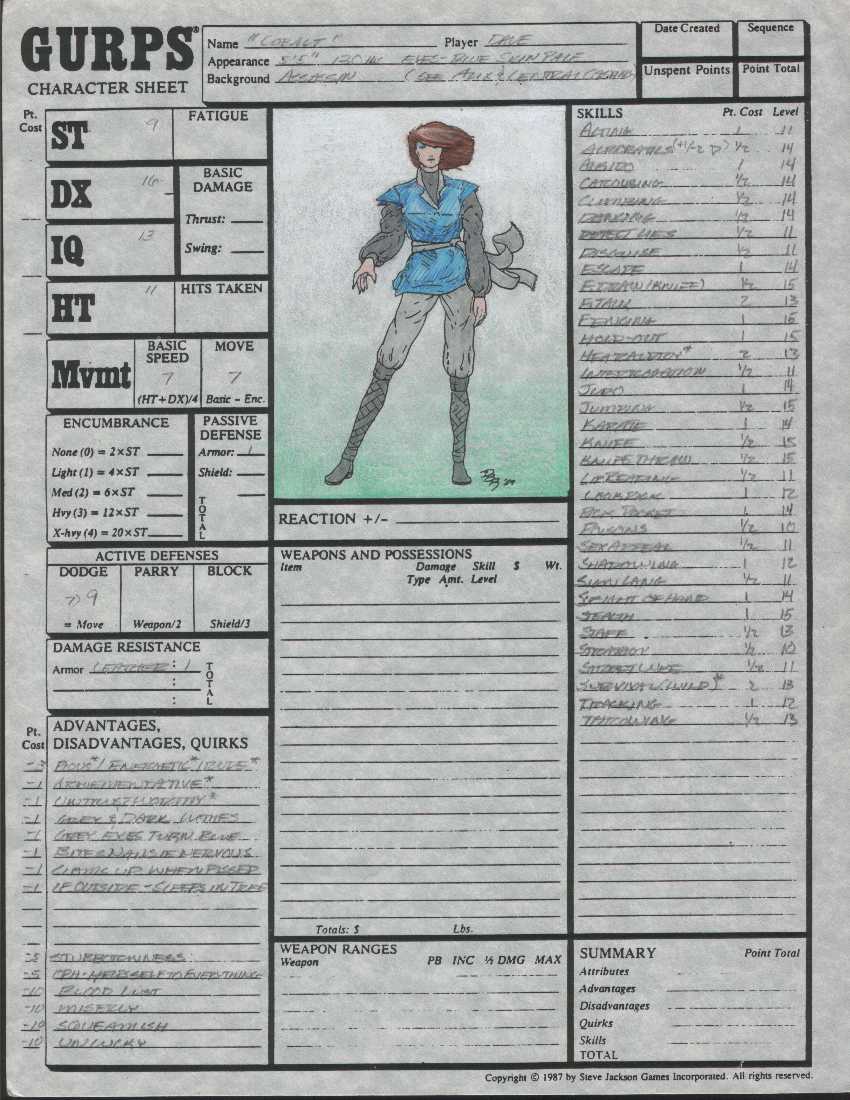 GURPS®
CHARACTER SHEET
Name "COBALT" Player DAVE
Appearance 5'5" 130 EYES-BLUE SKIN PALE
Background ASSASSIN (SEE
Date Created
Sequence
Unspent Points
Point Total
Pt. Cost
ST 9
FATIGUE
DX 16
BASIC DAMAGE
Thrust:
Swing:
IQ 13
HT 11
HITS TAKEN
Mvmt
BASIC SPEED
7
(HT+DX)/4
MOVE
7
Basic – Enc.
ENCUMBRANCE
None (0) = 2×ST
Light (1) = 4×ST
Med (2) = 6×ST
Hvy (3) = 12×ST
X-hvy (4) = 20×ST
PASSIVE DEFENSE
Armor: 1
Shield:
TOTAL
ACTIVE DEFENSES
DODGE
9
= Move
PARRY
Weapon/2
BLOCK
Shield/3
DAMAGE RESISTANCE
Armor LEATHER : 1
TOTAL
Pt. Cost
ADVANTAGES,
DISADVANTAGES, QUIRKS
-3 PIOUS*/ENERGETIC*/RUDE*
-1 ARGUMENTATIVE*
-1 UNTRUSTWORTHY*
-1 GREY & DARK CLOTHES
-1 GREY EYES TURN BLUE
-1 BITES NAILS IF NERVOUS
-1 CLAMS UP WHEN PISSED
-1 IF OUTSIDE - SLEEPS IN TREE
-5 STUBBORNNESS
-5 HELPS SELF TO EVERYTHING
-10 BLOOD LUST
-10 MISERLY
-10 SQUEAMISH
-10 UNLUCKY
REACTION +/–
WEAPONS AND POSSESSIONS
Item Damage Skill $ Wt.
Type Amt. Level
Totals: $ Lbs.
WEAPON RANGES
Weapon PB INC ½ DMG MAX
SKILLS Pt. Cost Level
ACTING 1 11
ACROBATICS 1/2 14
1 14
CAROUSING 1/2 14
CLIMBING 1/2 14
DANCING 1/2 14
DETECT LIES 1/2 11
DISGUISE 1/2 11
ESCAPE 1 14
F. DRAW (KNIFE) 1/2 15
2 13
FENCING 1 15
HOLD-OUT 1 15
2 13
INTERROGATION 1/2 11
JUDO 1 14
JUMPING 1/2 15
KARATE 1 14
KNIFE 1/2 15
KNIFE THROW 1/2 15
LIP READING 1/2 11
LOCKPICK 1 12
PICK POCKET 1 14
POISONS 1/2 10
SEX APPEAL 1/2 11
SHADOWING 1 12
SIGN LANG 1/2 11
SLEIGHT OF HAND 1 14
STEALTH 1 15
STAFF 1/2 13
1/2 10
STREETWISE 1/2 11
SURVIVAL 2 13
TRACKING 1 12
THROWING 1/2 13
SUMMARY Point Total
Attributes
Advantages
Disadvantages
Quirks
Skills
TOTAL
Copyright © 1987 by Steve Jackson Games Incorporated. All rights reserved.